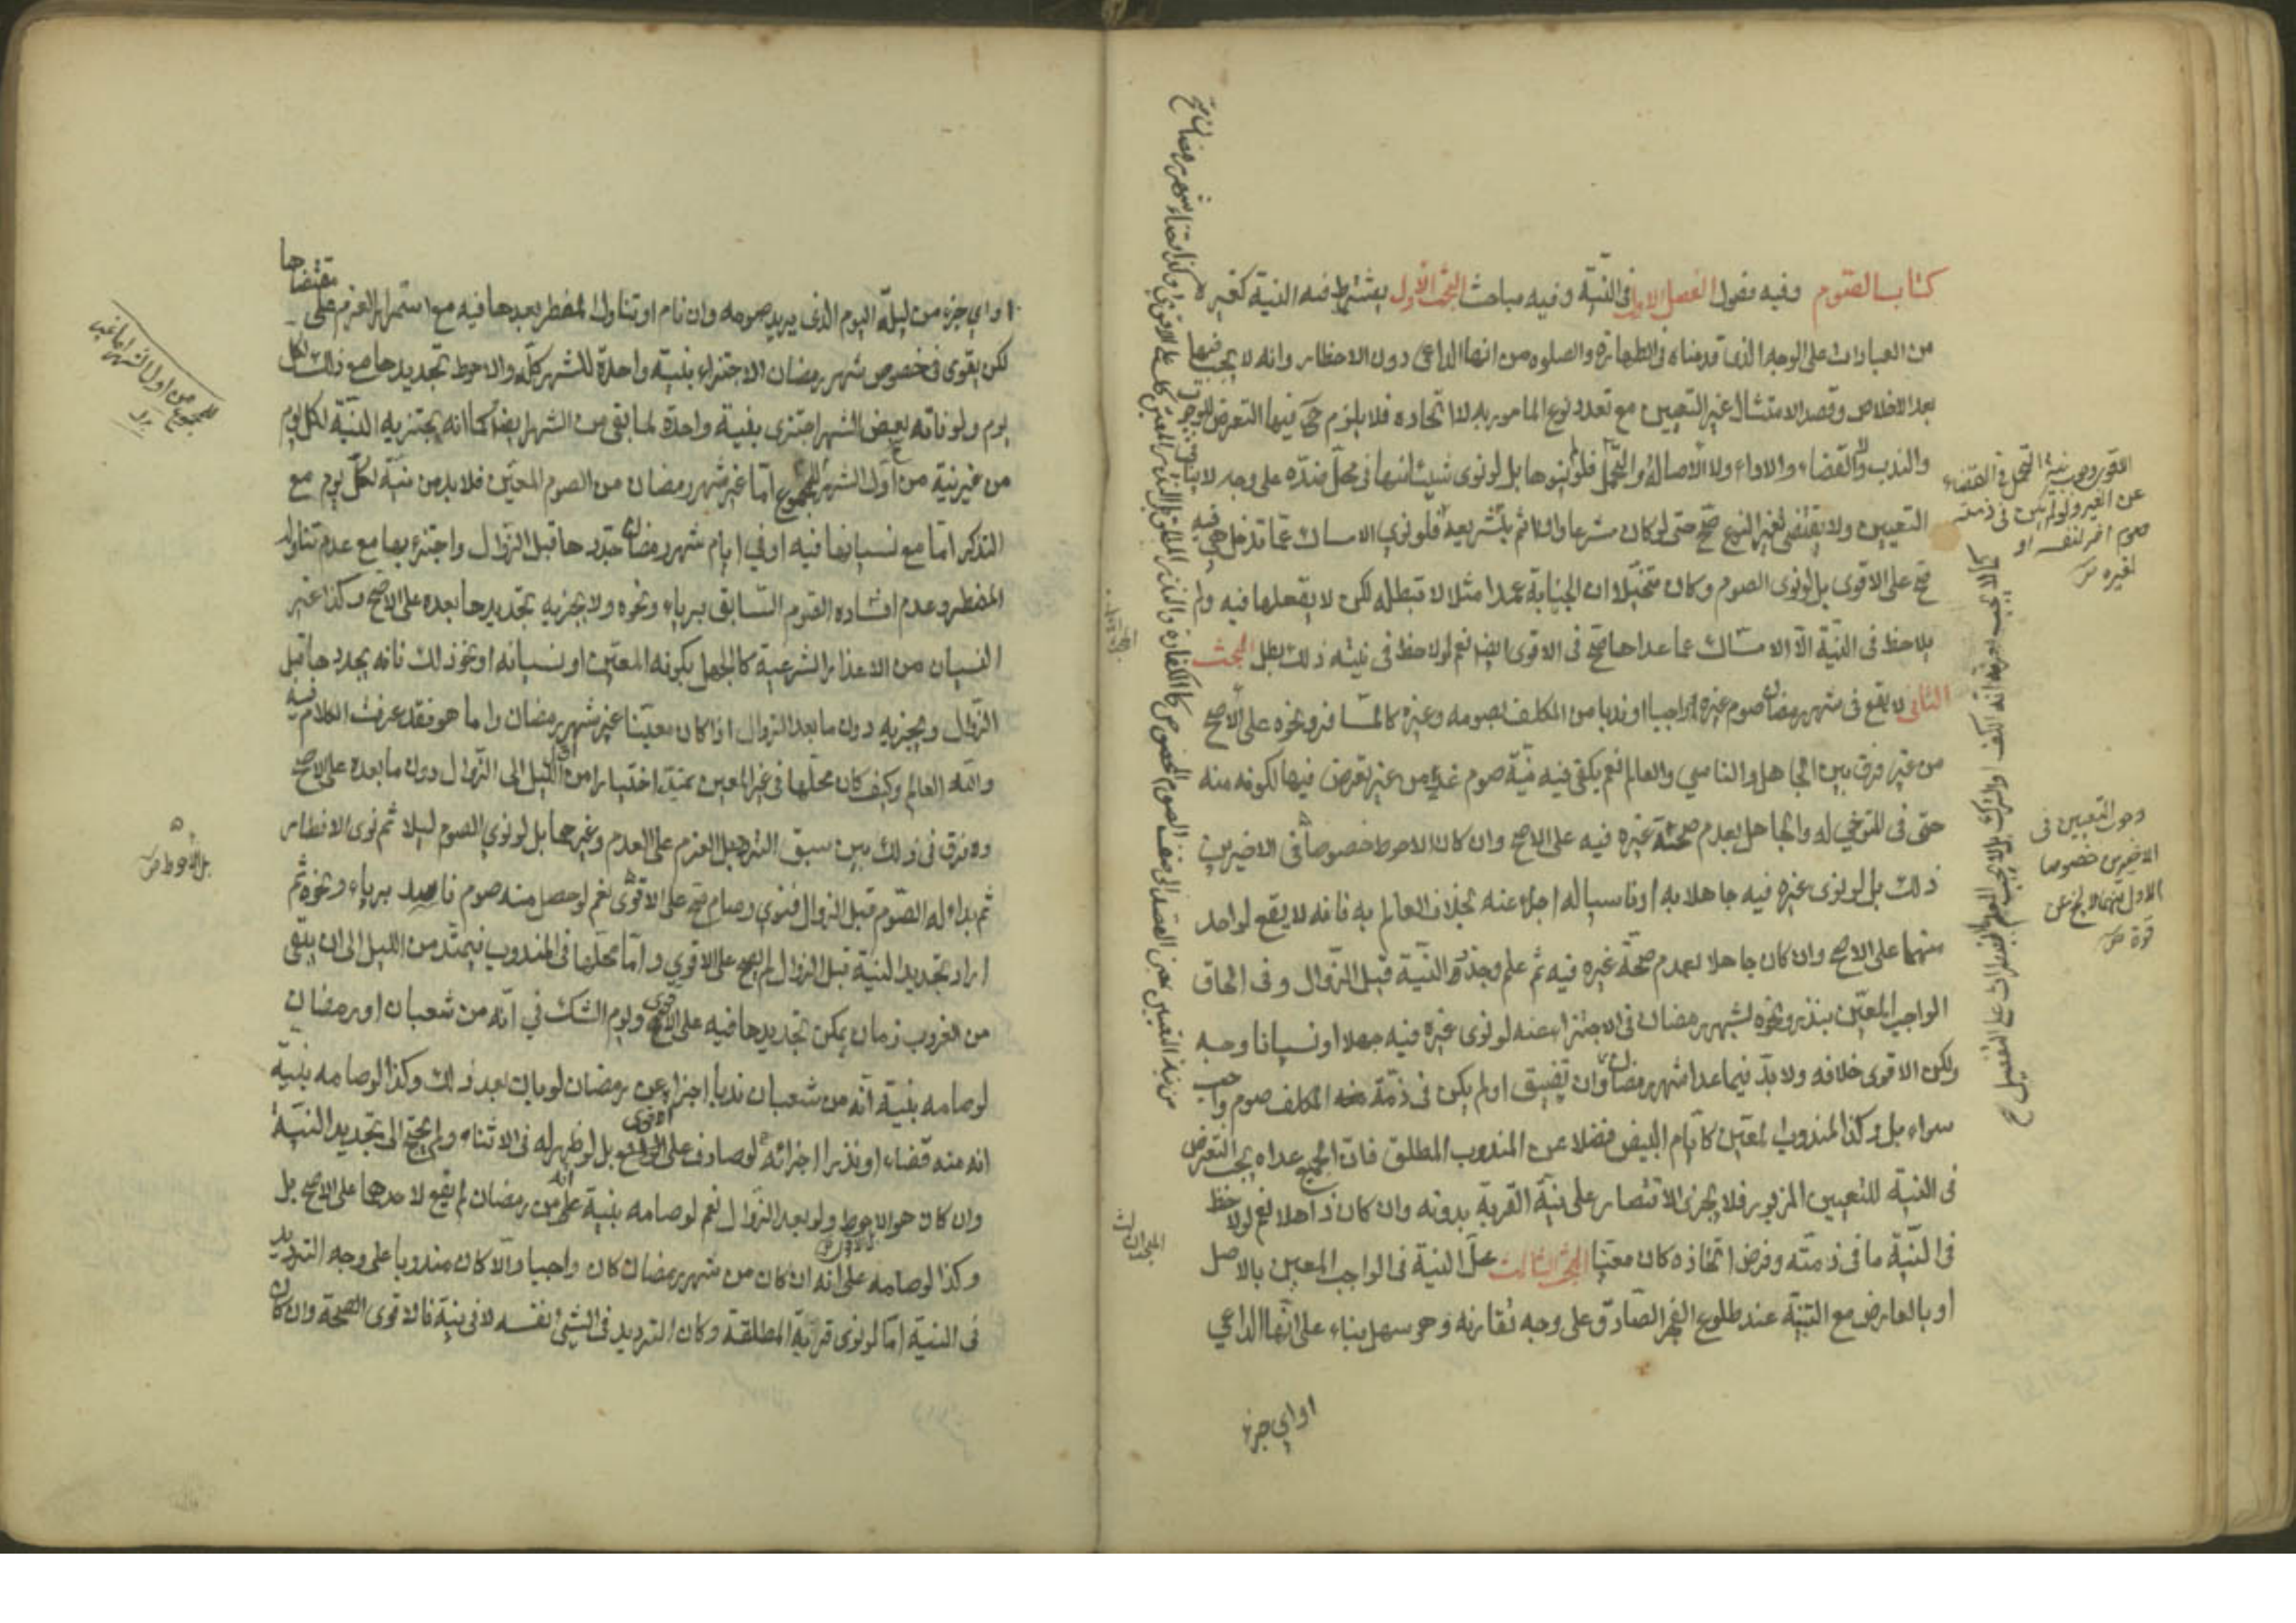 كتاب الصوم وفيه فصول الفصل الاول في النية وفيه مباحث البحث الاول يشترط فيه النية كغيره
من العبادات على الوجه الذي قدمناه في الطهارة والصلوه من انها الداعى دون الاخطار وانه لا يجب فيها
بعد الاخلاص وقصد الامتثال غير التعيين مع تعدد نوع المامور به لا اتحاده فلا يلزم ح فيها التعرض للوجوب
والندب والقضاء والاداء ولا الاصالة والتحمل فلو لم ينوها بل لو نوى شيئا منها في محل ضده على وجه لا ينافي
التعيين ولا يقتضى تغير النوع صح حتى لو كان شرعا وان اثم بتشريعه فلو نوى الامساك عما تدخل هي فيه
صح على الاقوى بل لو نوى الصوم وكان متخيلا ان الجنابة عمدا مثلا لا تبطله لكن لا يفعلها فيه ولم
يلاحظ في النية الا الامساك عما عداها صح في الاقوى ايضا نعم لو لاحظ في نيته ذلك بطل البحث
الثانى لا يقع في شهر رمضان صوم غيره واجبا او ندبا من المكلف بصومه وغيره كالمسافر ونحوه على الاصح
من غير فرق بين الجاهل والناسي والعالم نعم يكفي فيه نية صوم غد من غير تعرض فيها لكونه منه
حتى في المتوخي له والجاهل بعدم صحة غيره فيه على الاصح وان كان الاحوط خصوصا في الاخيرين
ذلك بل لو نوى غيره فيه جاهلا به او ناسيا له اجزء عنه بخلاف العالم به فانه لا يقع لواحد
منهما على الاصح وان كان جاهلا بعدم صحة غيره فيه ثم علم وجدد النية قبل الزوال وفي الحاق
الواجب المعين بنذر ونحوه لشهر رمضان في الاجتزاء عنه لو نوى غيره فيه جهلا او نسيانا وجه
ولكن الاقوى خلافه ولا بد فيما عدا شهر رمضان وان تضيق او لم يكن في ذمة المكلف صوم واجب
سواه بل وكذا المندوب المعين كايام البيض فضلا عن المندوب المطلق فان الجميع عداه يجب التعرض
في النية للتعيين المزبور فلا يجزى الاقتصار على نية القربة بدونه وان كان ذاهلا نعم لو لاحظ
في النية ما في ذمته وفرض اتحاده كان معينا البحث الثالث محل النية في الواجب المعين بالاصل
او بالعارض مع التنبه عند طلوع الفجر الصادق على وجه تقارنه وهو سهل بناء على انها الداعي
او اي جزء
الاقوى وجوب نية التحمل في القضاء
عن الغير ولو لم يكن في ذمته
صوم اخر لنفسه او
لغيره
وجوب التعيين في
الاخيرين خصوصا
الاول منهما لا يخ عن
قوة
او اي جزء من ليلة اليوم الذي يريد صومه وان نام او تناول المفطر بعدها فيه مع استمرار العزم على مقتضاها
لكن يقوى في خصوص شهر رمضان الاجتزاء بنية واحدة للشهر كله والاحوط تجديدها مع ذلك لكل
يوم ولو فاته بعض الشهر اجتزى بنية واحدة لما بقى من الشهر ايضا كما انه يجتزيه النية لكل يوم
من غير نية من اول الشهر للمجموع اما غير شهر رمضان من الصوم المعين فلا بد من نية لكل يوم مع
التذكر اما مع نسيانها فيه او في ايام شهر رمضان جددها قبل الزوال واجتزء بها مع عدم تناوله
المفطر وعدم افساده الصوم السابق برياء ونحوه ولا يجزيه تجديدها بعده على الاصح وكذا غير
النسيان من الاعذار الشرعية كالجهل بكونه المعين او نسيانه او نحو ذلك فانه يجددها قبل
الزوال ويجزيه دون ما بعد الزوال اذا كان معينا غير شهر رمضان واما هو فقد عرفت الكلام فيه
والله العالم وكيف كان محلها في غير المعين يمتد اختيارا من اول الليل الى الزوال دون ما بعده على الاصح
ولا فرق في ذلك بين سبق التردد بل العزم على العدم وغيرهما بل لو نوى الصوم ليلا ثم نوى الافطار
ثم بداء له الصوم قبل الزوال فنوى وصام صح على الاقوى نعم لو حصل منه صوم فاسد برياء ونحوه ثم
اراد تجديد النية قبل الزوال لم يصح على الاقوى واما محلها في المندوب فيمتد من الليل الى ان يبقى
من الغروب زمان يمكن تجديدها فيه على الاقوى ويوم الشك في انه من شعبان او رمضان
لو صامه بنية انه من شعبان ندبا اجزاء عن رمضان لو بان بعد ذلك وكذا لو صامه بنية
انه منه قضاء او نذرا اجزائه لو صادف على الاقوى بل لو ظهر له في الاثناء ولم يحتج الى تجديد النية
وان كان هو الاحوط ولو بعد الزوال نعم لو صامه بنية انه من رمضان لم يقع لاحدهما على الاصح بل
وكذا لو صامه على انه ان كان من شهر رمضان كان واجبا والا كان مندوبا على وجه الترديد
في النية اما لو نوى قربة المطلقة وكان الترديد في الشيء نفسه لا في نية فالاقوى الصحة وان كان
للمجموع من اول الشهر اما غير
بل الاحوط